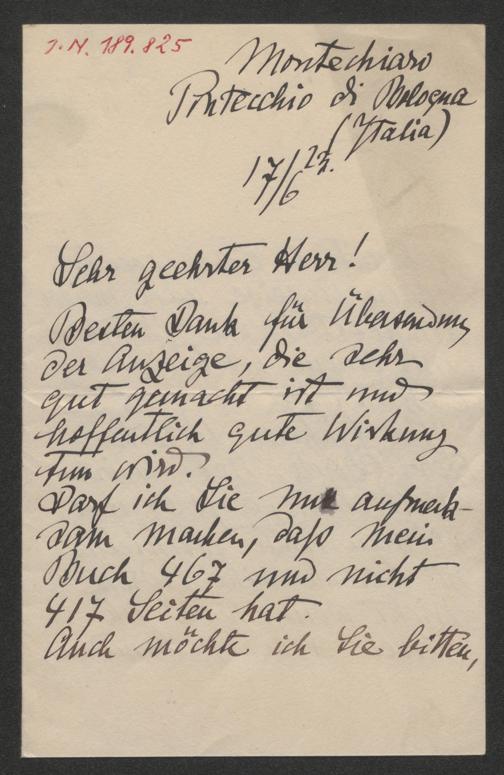 I.N. 189.825
Montechiaro
Pontecchio di Bologna
(Italia)
17/6 23.
Sehr geehrter Herr!
Besten Dank für Übersendung
der Anzeige, die sehr
gut gemacht ist und
hoffentlich gute Wirkung
tun wird.
Darf ich Sie nur aufmerk-
sam machen, daß mein
Buch 467 und nicht
417 Seiten hat.
Auch möchte ich Sie bitten,